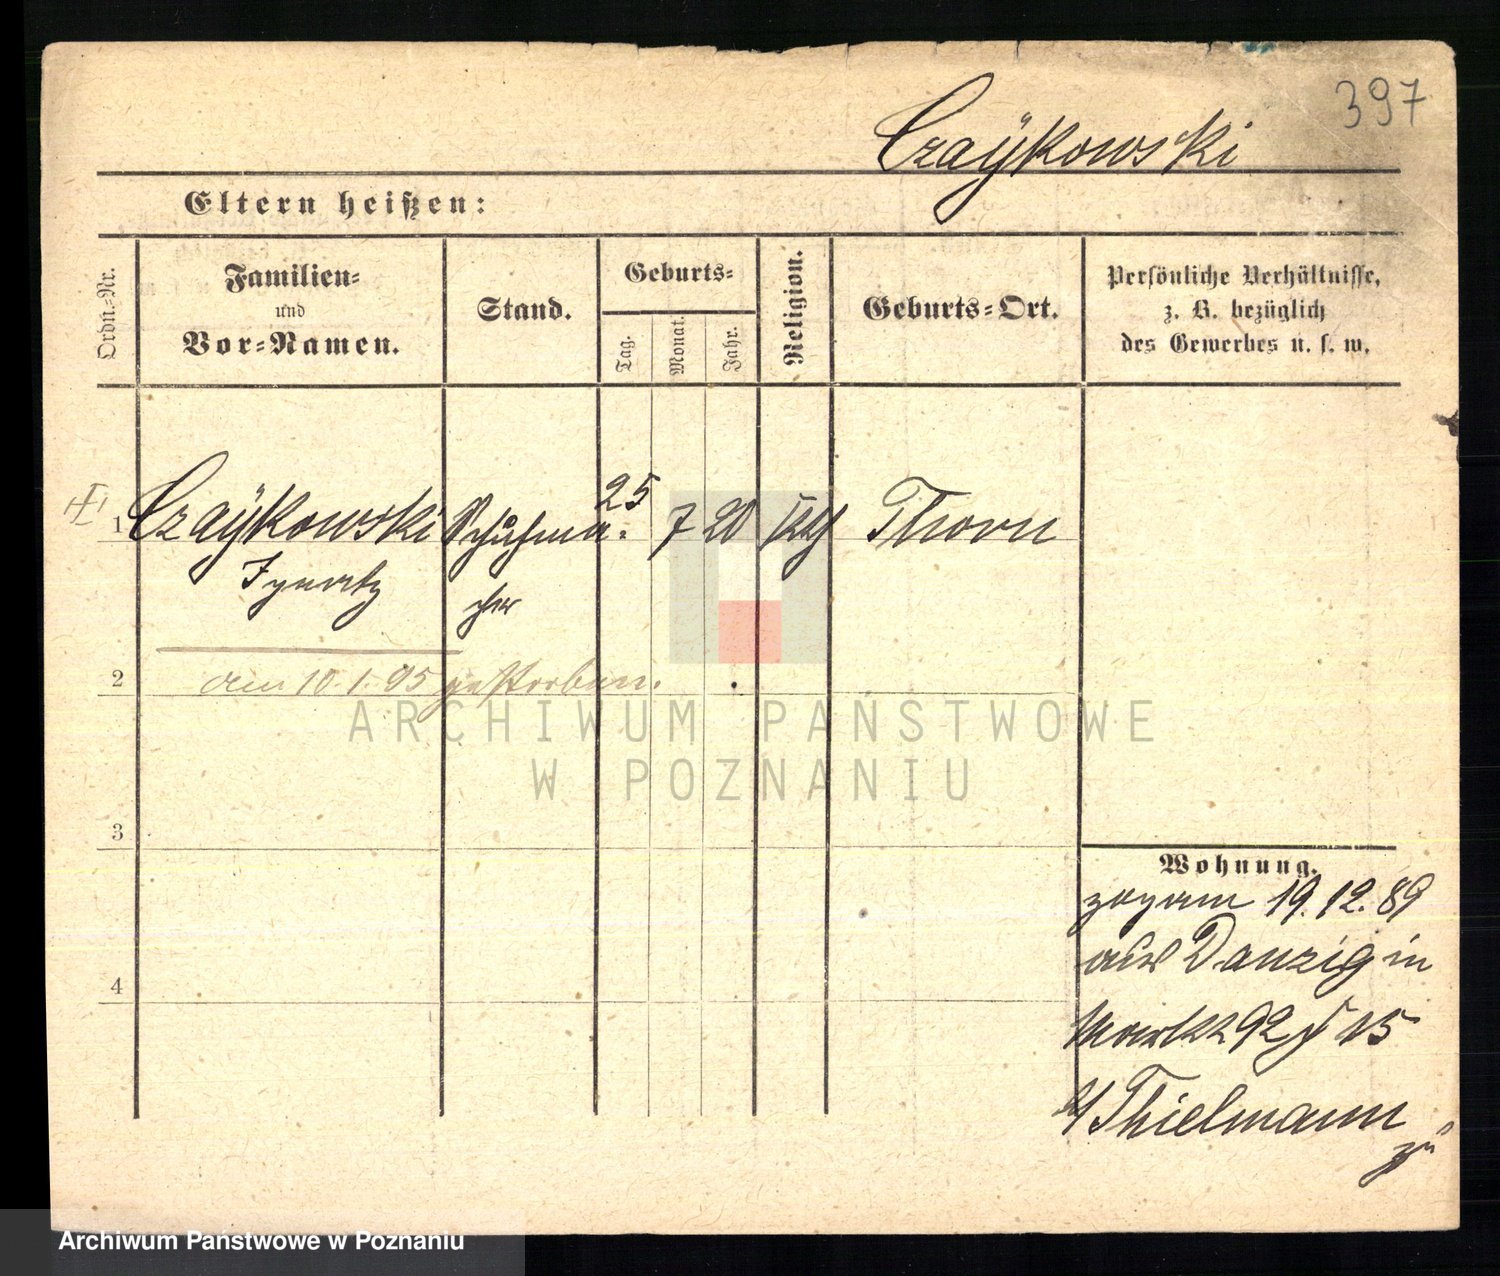 397
Czaÿkowski
Eltern heißen:
Ordn.-Nr.
Familien-
und
Vor-Namen.
Stand.
Geburts-
Tag.
Monat.
Jahr.
Religion.
Geburts-Ort.
Persönliche Verhältnisse,
z. B. bezüglich
des Gewerbes u. s. w.
1 Czaÿkowski Schuhma- 25 7 20 Thorn
Ignatz cher
2 am 10.1.95 gestorben.
3
4
Wohnung.
zog am 19.12.89
aus Danzig in
Markt 92 15
Thielmann
zu
ARCHIWUM PAŃSTWOWE
W POZNANIU
Archiwum Państwowe w Poznaniu